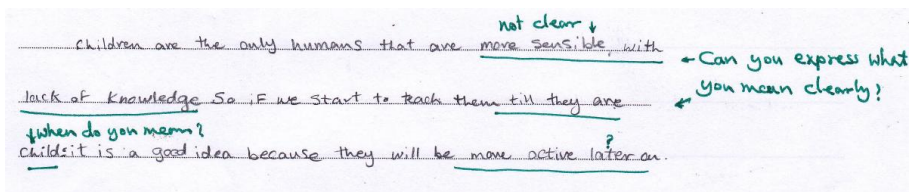 not clear ↓
Children are the only humans that are more sensible, with
← Can you express what
you mean clearly?
lack of knowledge So if we start to teach them till they are
↓ when do you mean?
childs it is a good idea because they will be more active later on.
?